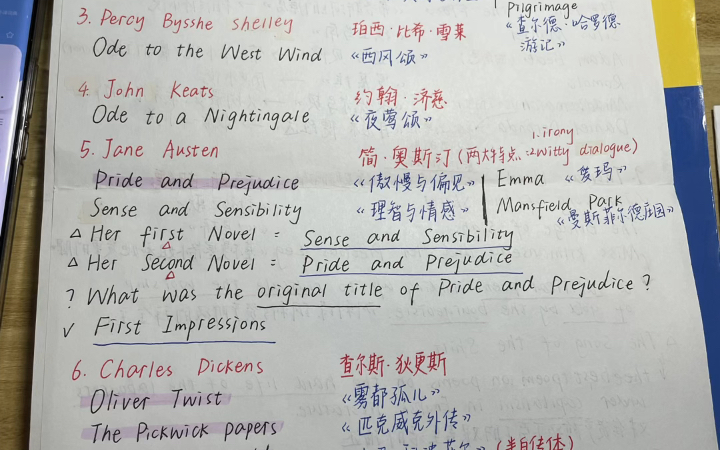 pilgrimage
3. Percy Bysshe shelley 珀西·比希·雪莱 《查尔德·哈罗德
游记》
Ode to the West Wind 《西风颂》
4. John Keats 约翰·济慈
Ode to a Nightingale 《夜莺颂》
1. irony
5. Jane Austen 简·奥斯汀 (两大特点:2witty dialogue)
Pride and Prejudice 《傲慢与偏见》 Emma 《爱玛》
Sense and Sensibility 《理智与情感》 Mansfield Park
《曼斯菲尔德庄园》
△ Her first Novel = Sense and Sensibility
△ Her Second Novel = Pride and Prejudice
? What was the original title of Pride and Prejudice ?
√ First Impressions
6. Charles Dickens 查尔斯·狄更斯
Oliver Twist 《雾都孤儿》
The Pickwick papers 《匹克威克外传》
(半自传体)